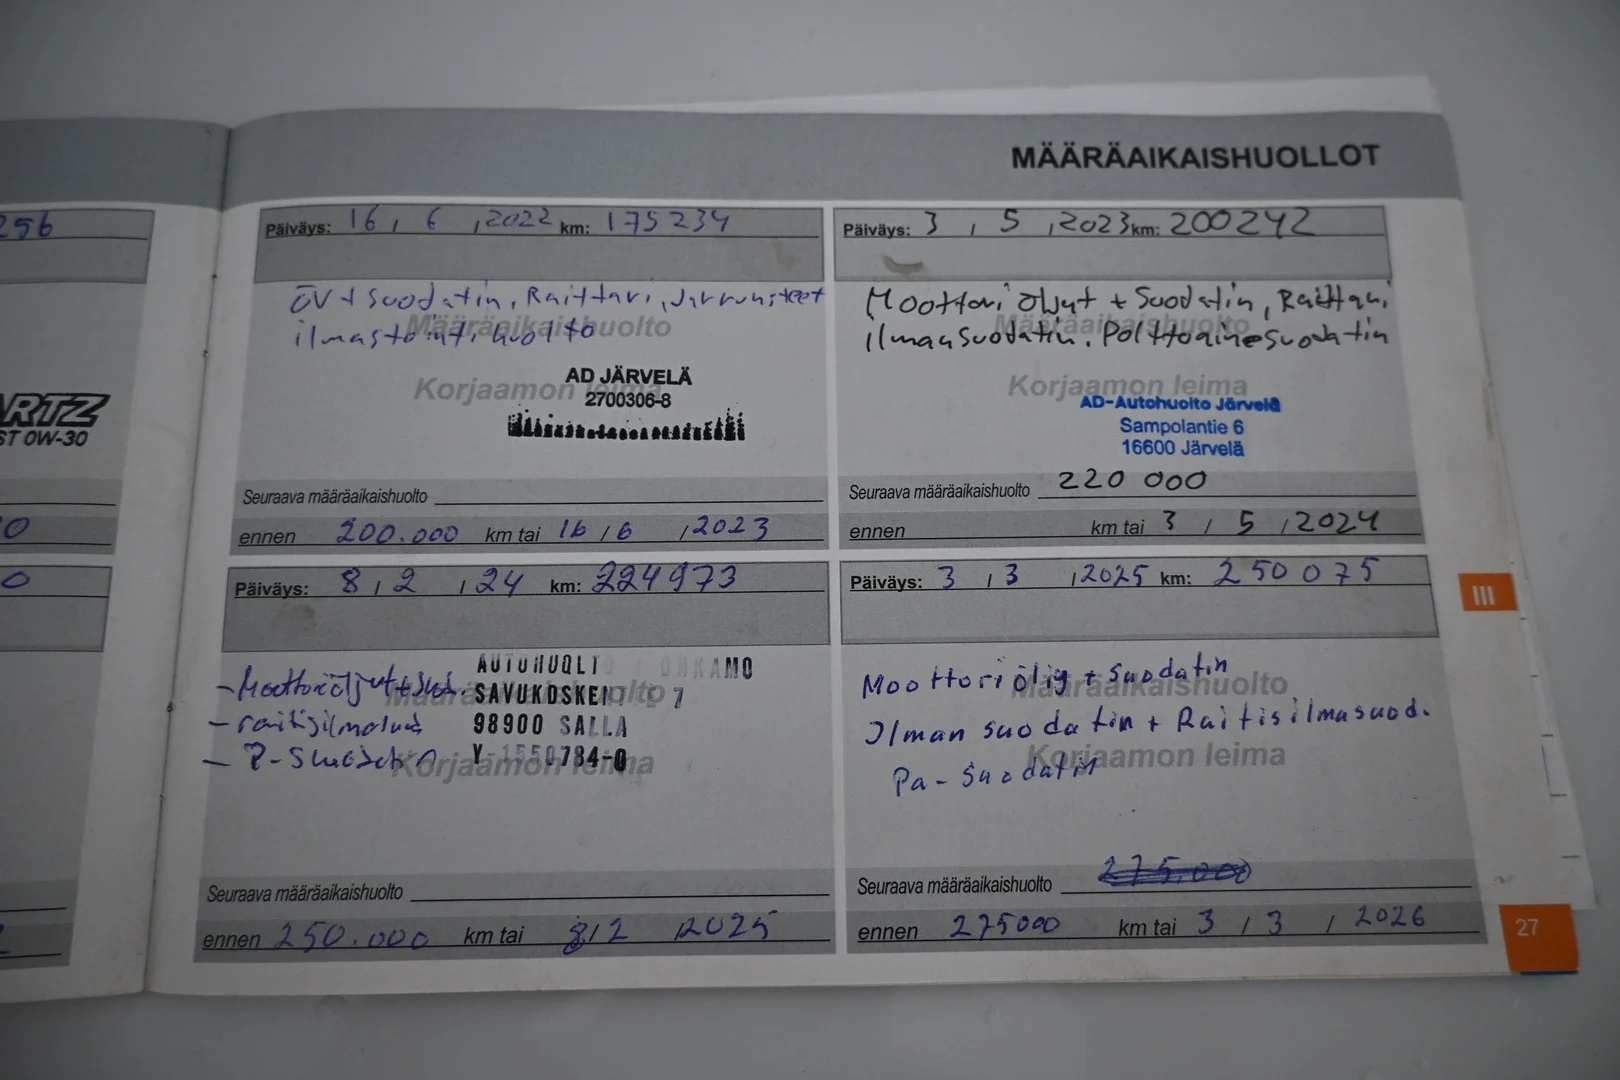 MÄÄRÄAIKAISHUOLLOT
256
ARTZ
ST 0W-30
0
0
Päiväys: 16 / 6 / 2022 km: 175234
ÖV + Suodatin, Raittari, Jarrunesteet
ilmastointi huolto
Määräaikaishuolto
Korjaamon leima
AD JÄRVELÄ
2700306-8
Seuraava määräaikaishuolto
ennen 200.000 km tai 16 / 6 / 2023
Päiväys: 3 / 5 / 2023 km: 200242
Moottori öljyt + Suodatin, Raittari
Ilmansuodatin, Polttoainesuodatin
Määräaikaishuolto
Korjaamon leima
AD-Autohuolto Järvelä
Sampolantie 6
16600 Järvelä
Seuraava määräaikaishuolto 220 000
ennen km tai 3 / 5 / 2024
Päiväys: 8 / 2 / 24 km: 224973
AUTOHUOLTO ONKAMO
- Moottoriöljyt + suod. SAVUKOSKENTIE 7
98900 SALLA
Y-1550784-0
Määräaikaishuolto
Korjaamon leima
Seuraava määräaikaishuolto
ennen 250.000 km tai 8 / 2 / 2025
Päiväys: 3 / 3 / 2025 km: 250075
Moottoriöljy + Suodatin
Ilman suodatin + Raitisilmasuod.
Pa-Suodatin
Määräaikaishuolto
Korjaamon leima
Seuraava määräaikaishuolto 275.000
ennen 275000 km tai 3 / 3 / 2026
III
27